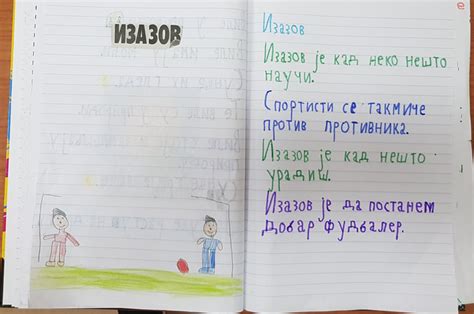 ИЗАЗОВ
Изазов
Изазов је кад неко нешто
научи.
Спортисти се такмиче
против противника.
Изазов је кад нешто
урадиш.
Изазов је да постанем
довар фудвалер.